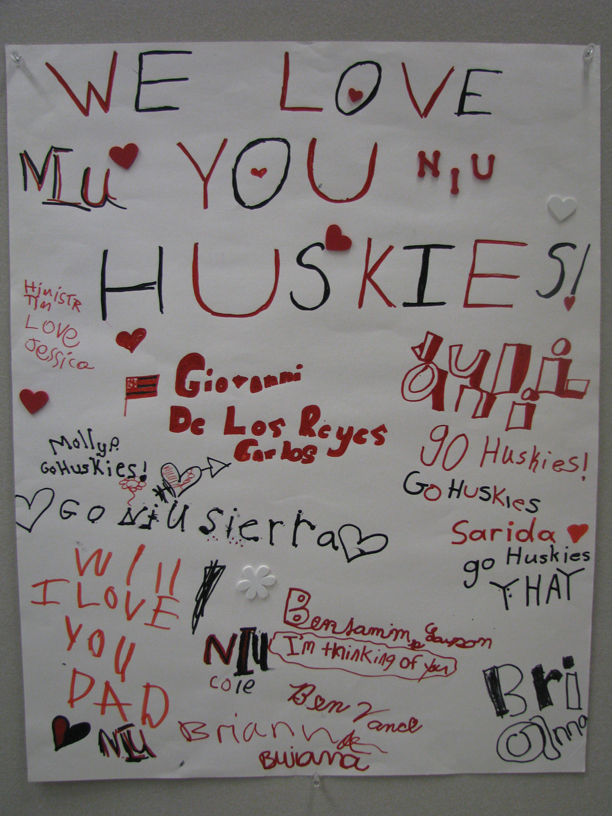 WE LOVE
NIU YOU NIU
HUSKIES!
Love
Jessica
Giovanni
De Los Reyes
Carlos
Molly P.
Go Huskies!
go Huskies!
Go Huskies
Go NIU Sierra
Sarida
go Huskies
YHAY
Will
I LOVE
YOU
DAD
NIU
cole
Benjamin
I'm thinking of you
Ben Vance
Bri
anna
NIU
Briann
Briana